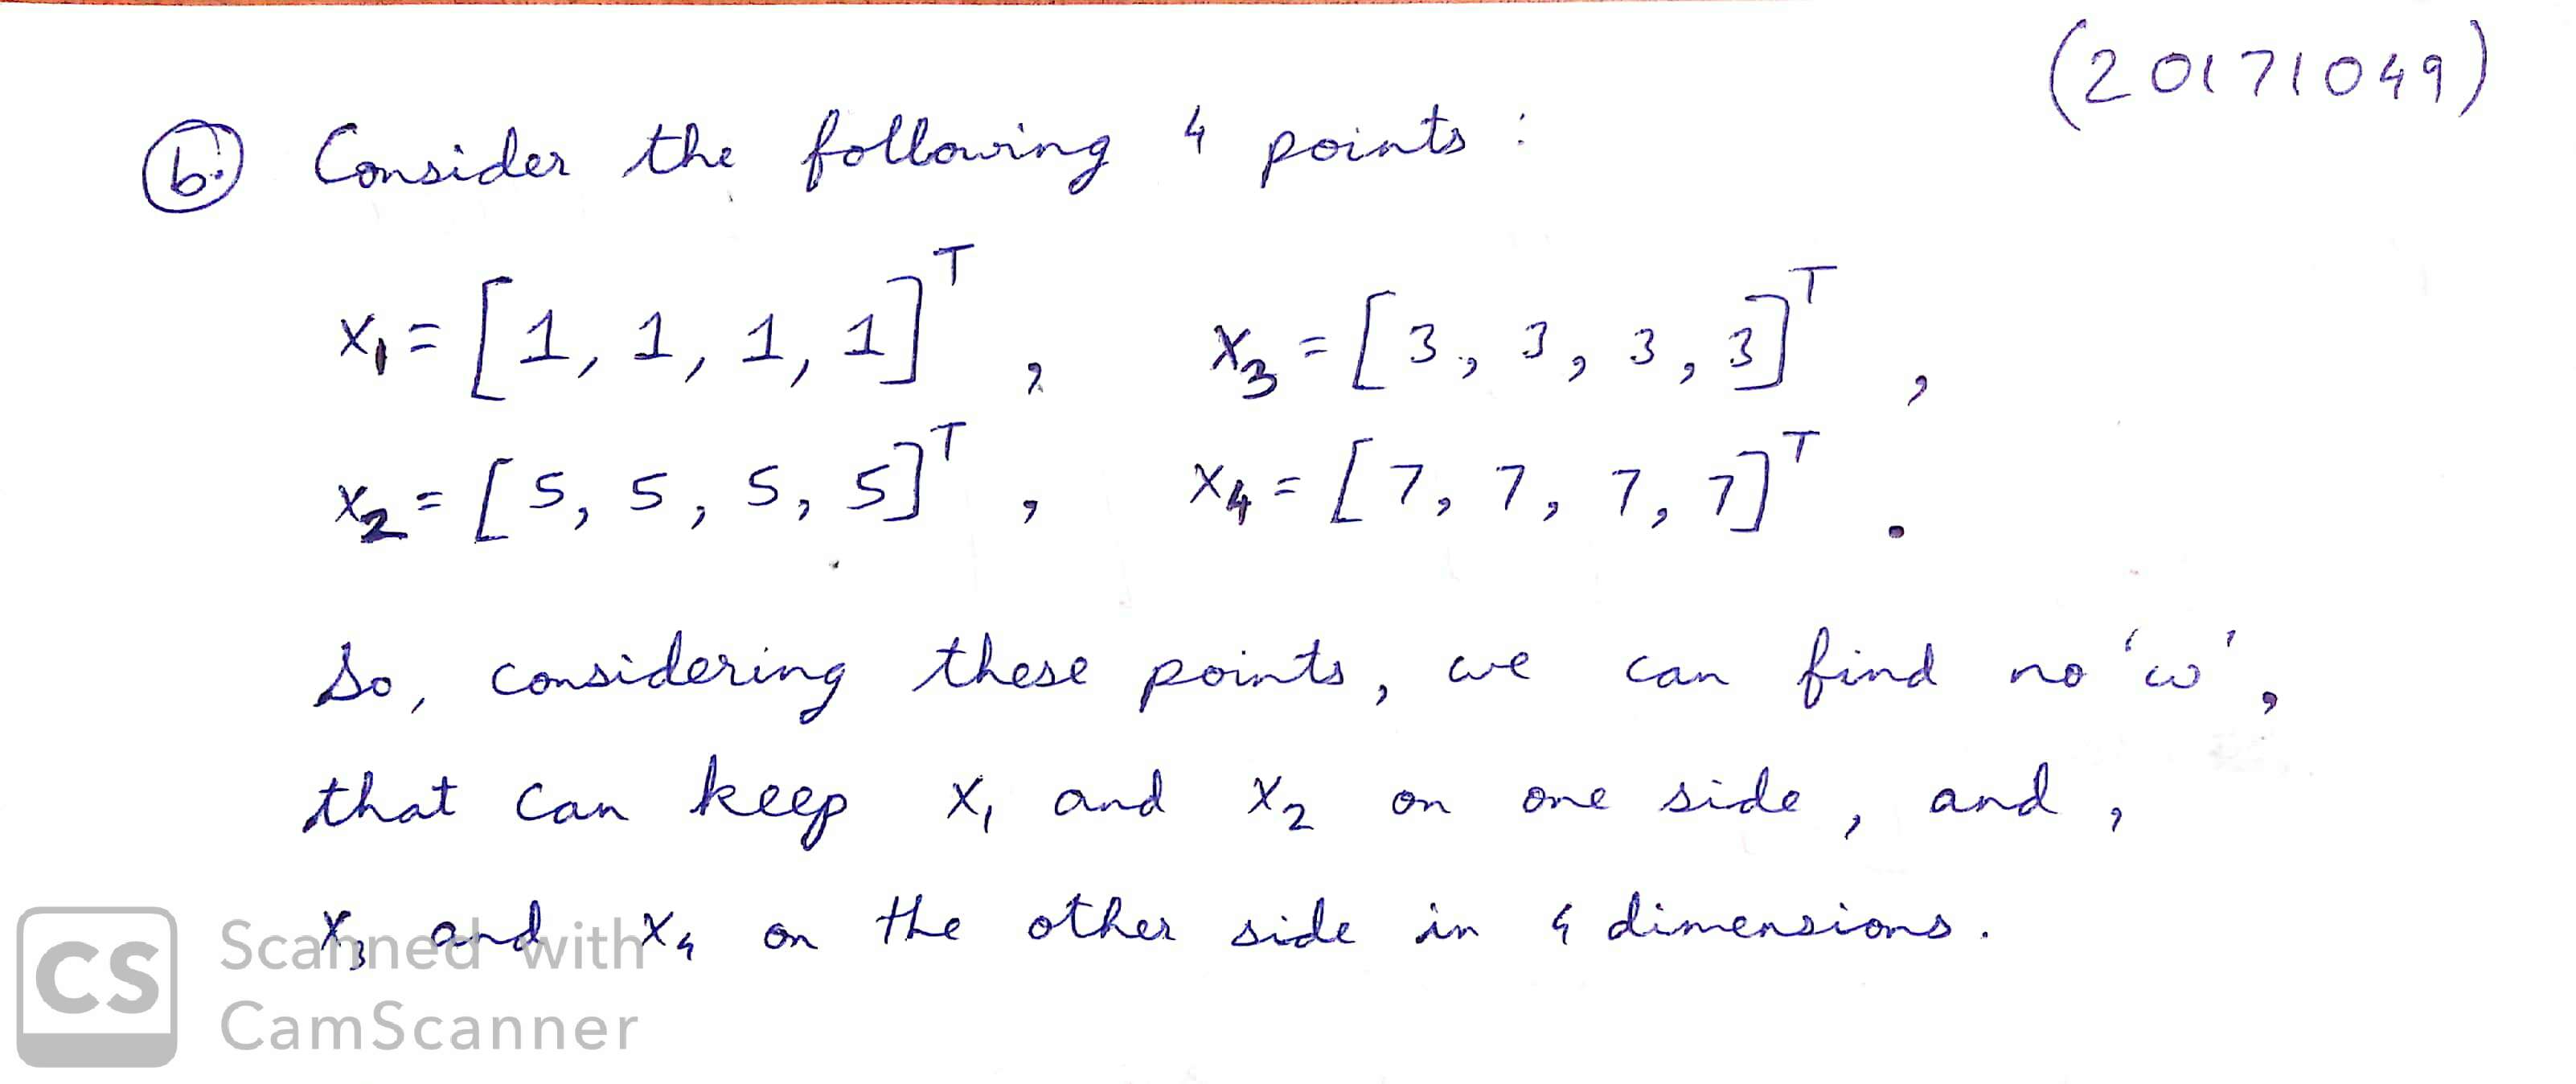 (20171049)
b. Consider the following 4 points :
x₁ = [1, 1, 1, 1]ᵀ , x₃ = [3, 3, 3, 3]ᵀ ,
x₂ = [5, 5, 5, 5]ᵀ , x₄ = [7, 7, 7, 7]ᵀ .
So, considering these points, we can find no 'w',
that can keep x₁ and x₂ on one side, and,
x₃ and x₄ on the other side in 4 dimensions.
CS Scanned with
CamScanner